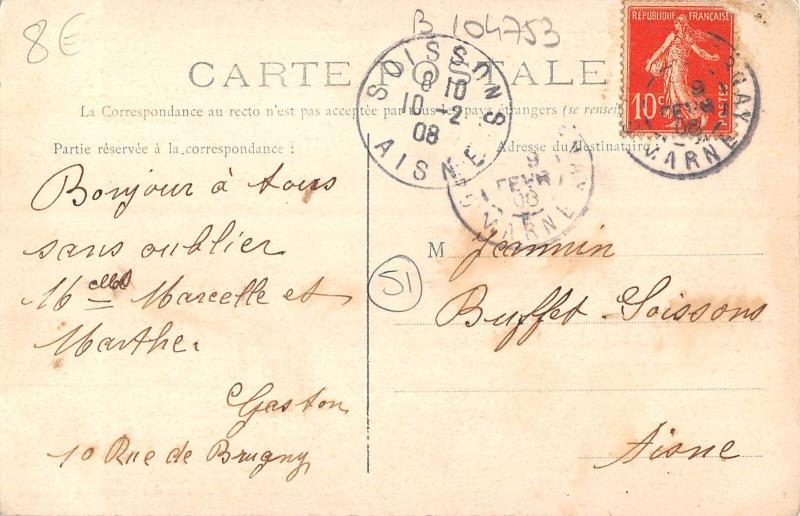 8€
B 104753
CARTE POSTALE
RÉPUBLIQUE FRANÇAISE
10c POSTES
SOISSONS
8 10
10 -2
08
AISNE
9
FEVR
08
MARNE
La Correspondance au recto n'est pas acceptée par tous les pays étrangers (se rensei
Partie réservée à la correspondance :
Adresse du destinataire :
9
FEVR
08
MARNE
Bonjour à tous
sans oublier
Melles Marcelle et
Marthe.
Gaston
10 Rue de Brugny
51
M Jeannin
Buffet Soissons
Aisne